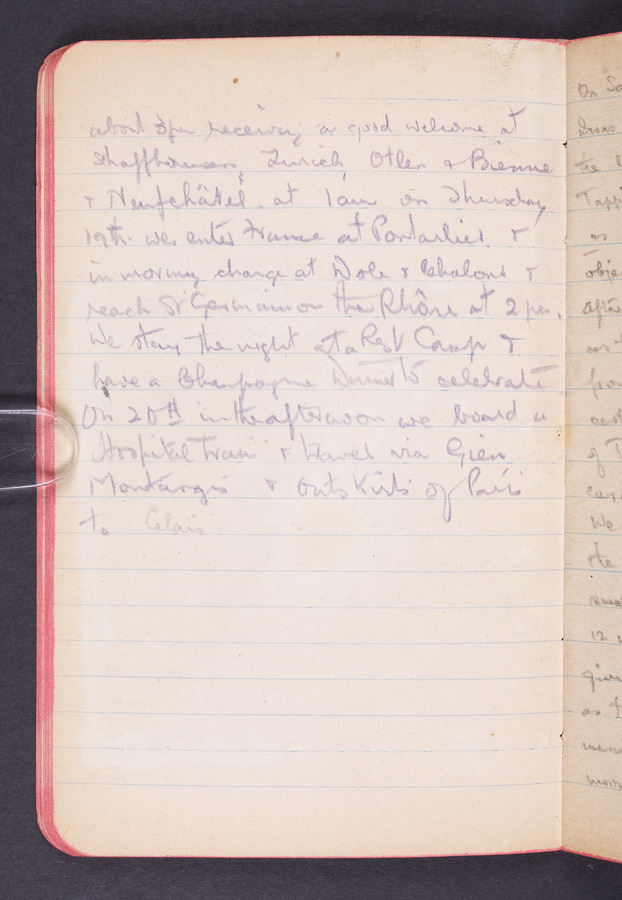 about 3pm receiving a good welcome at
Shaffhausen, Zurich, Olten & Bienne
& Neufchâtel. at 1am on Thursday
19th. we enter France at Pontarlier. &
in morning change at Dole & Chalons &
reach St Germain on the Rhône at 2 pm.
We stay the night at a Rest Camp &
have a Champagne Dinner to celebrate
On 20th in the afternoon we board a
Hospital Train & travel via Gien
Montargis & outskirts of Paris
to Calais
On
the
as
We
the
12